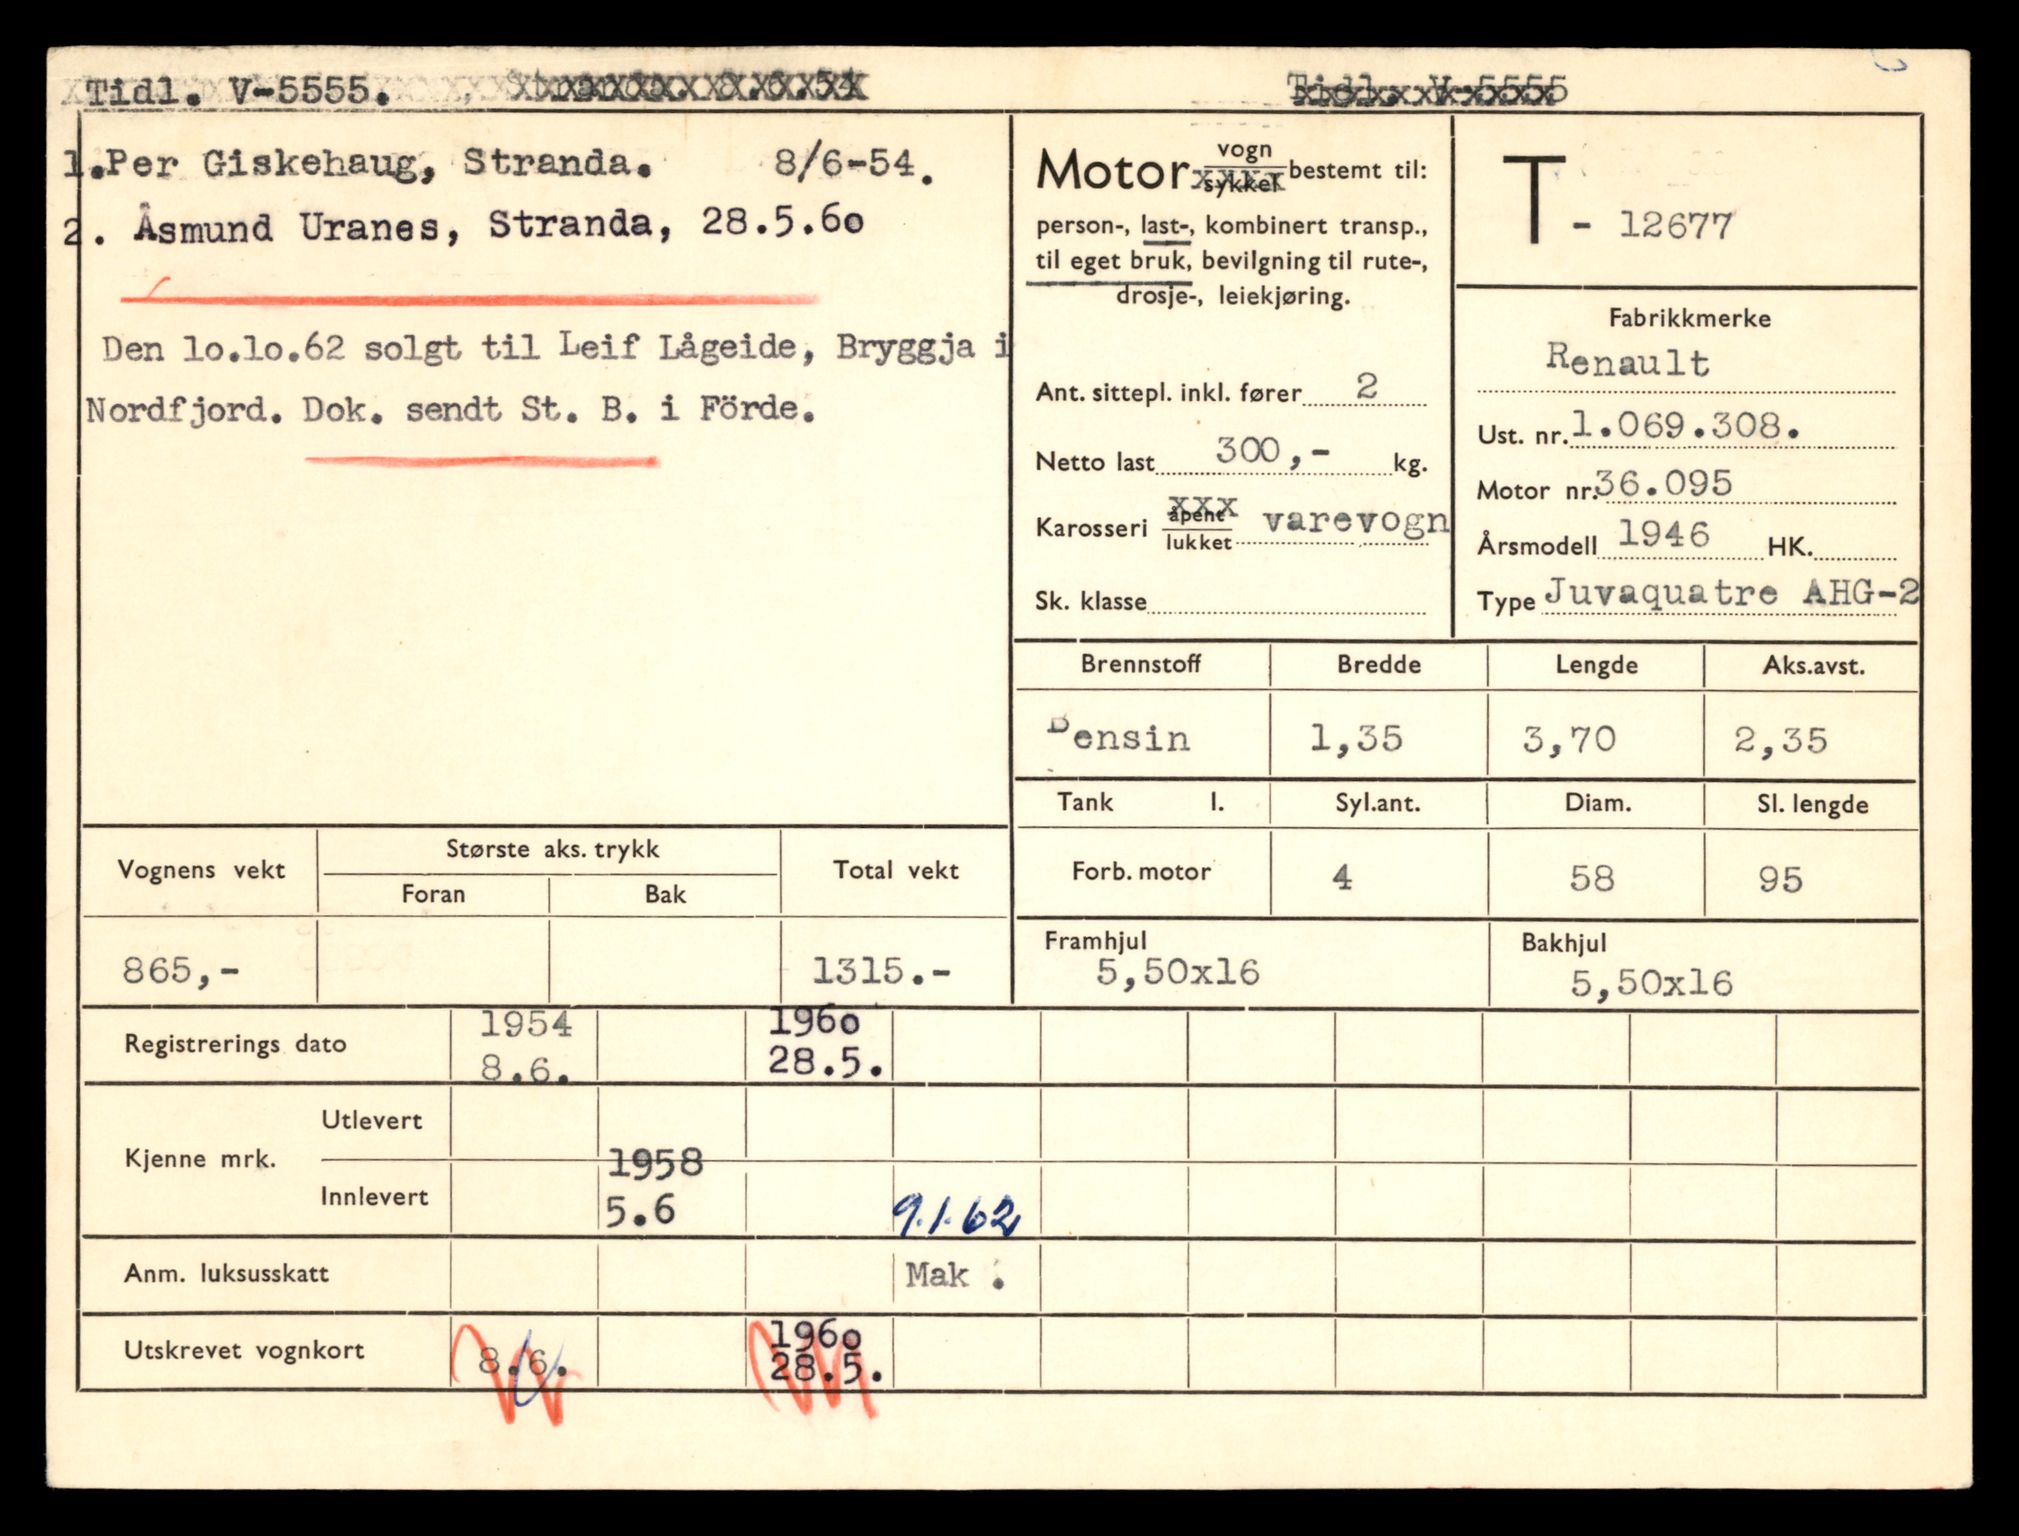 Tidl. V-5555.
Tidl. V-5555
1.Per Giskehaug, Stranda. 8/6-54.
2. Åsmund Uranes, Stranda, 28.5.6o
Den lo.lo.62 solgt til Leif Lågeide, Bryggja i
Nordfjord. Dok. sendt St. B. i Förde.
Motor vogn sykkel bestemt til:
person-, last-, kombinert transp.,
til eget bruk, bevilgning til rute-,
drosje-, leiekjøring.
Ant. sittepl. inkl. fører 2
Netto last 300,- kg.
Karosseri åpent lukket varevogn
Sk. klasse
T - 12677
Fabrikkmerke
Renault
Ust. nr. 1.069.308.
Motor nr. 36.095
Årsmodell 1946 HK.
Type Juvaquatre AHG-2
Brennstoff Bredde Lengde Aks.avst.
Bensin 1,35 3,70 2,35
Tank l. Syl.ant. Diam. Sl. lengde
Forb. motor 4 58 95
Framhjul Bakhjul
5,50x16 5,50x16
Vognens vekt Største aks. trykk Total vekt
Foran Bak
865,- 1315.-
Registrerings dato 1954 196o
8.6. 28.5.
Kjenne mrk. Utlevert
1958
Innlevert 5.6 9.1.62
Anm. luksusskatt Mak .
Utskrevet vognkort 8.6. 196o
28.5.